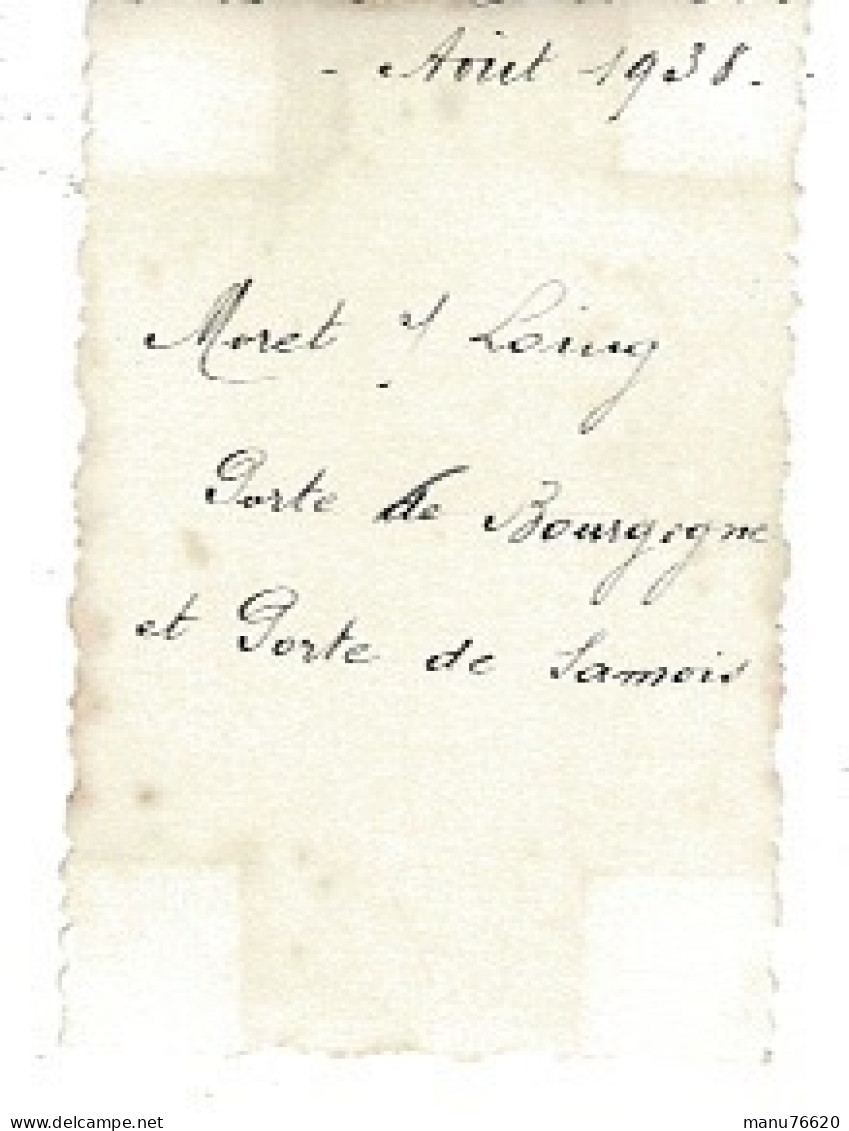 - Août 1938.
Moret s/ Loing
Porte de Bourgogne
et Porte de Samois
www.delcampe.net
manu76620